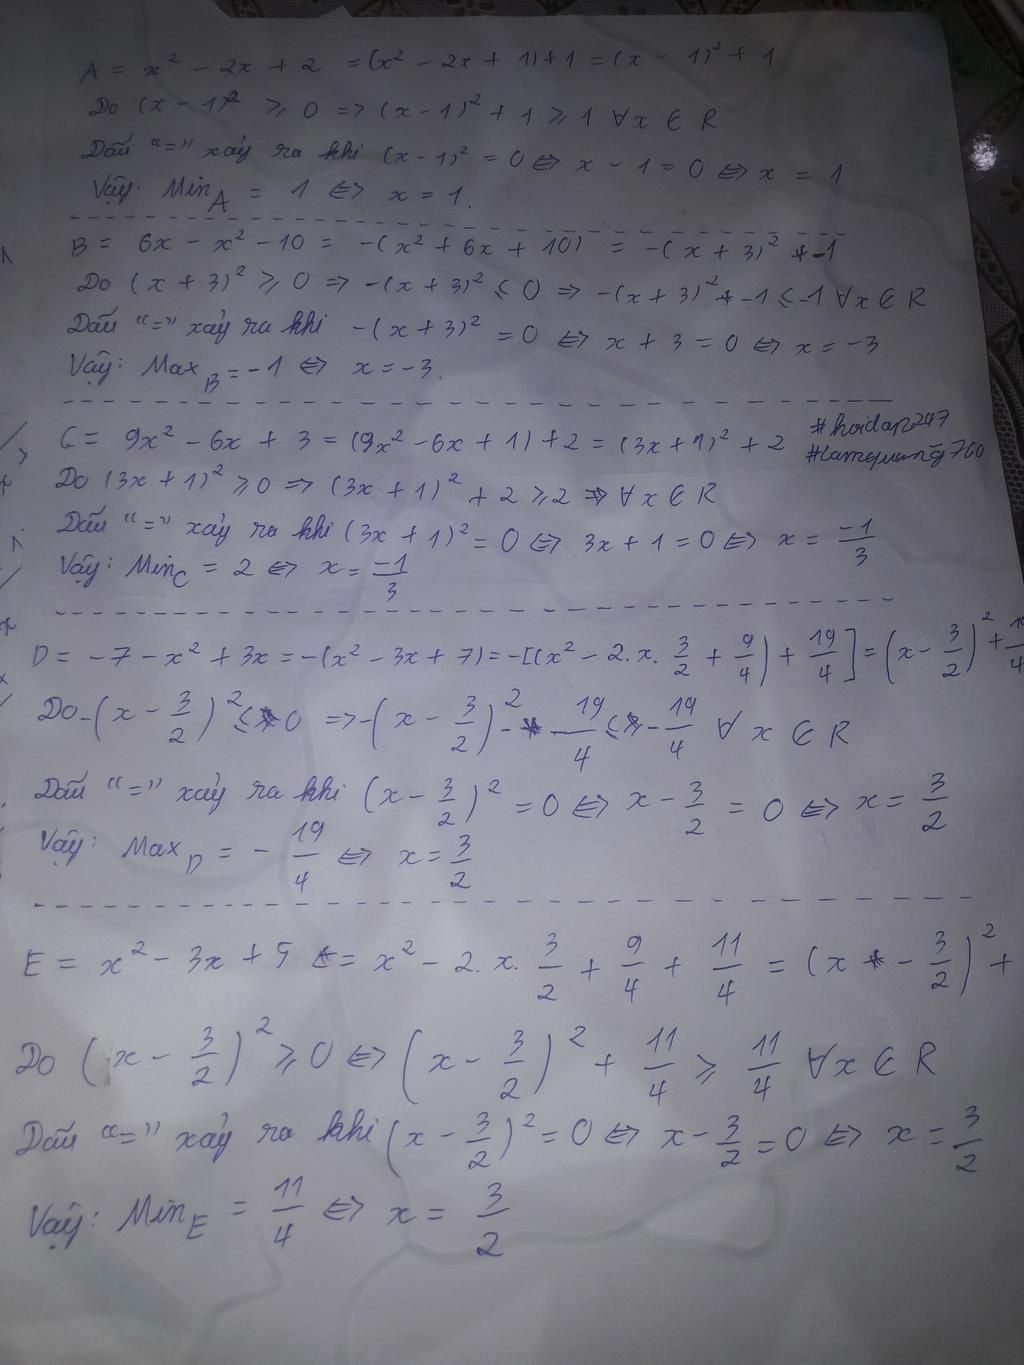 A = x² - 2x + 2 = (x² - 2x + 1) + 1 = (x - 1)² + 1
Do (x - 1)² ⩾ 0 => (x - 1)² + 1 ⩾ 1 ∀x ∈ R
Dấu "=" xảy ra khi (x - 1)² = 0 <=> x - 1 = 0 <=> x = 1
Vậy: Min_A = 1 <=> x = 1.
B = 6x - x² - 10 = -(x² + 6x + 10) = -(x + 3)² - 1
Do (x + 3)² ⩾ 0 => -(x + 3)² ⩽ 0 => -(x + 3)² - 1 ⩽ -1 ∀x ∈ R
Dấu "=" xảy ra khi -(x + 3)² = 0 <=> x + 3 = 0 <=> x = -3
Vậy: Max_B = -1 <=> x = -3.
C = 9x² - 6x + 3 = (9x² - 6x + 1) + 2 = (3x + 1)² + 2 #hoidap247
#lamquang760
Do (3x + 1)² ⩾ 0 => (3x + 1)² + 2 ⩾ 2 => ∀x ∈ R
Dấu "=" xảy ra khi (3x + 1)² = 0 <=> 3x + 1 = 0 <=> x = -1/3
Vậy: Min_C = 2 <=> x = -1/3
D = -7 - x² + 3x = -(x² - 3x + 7) = -[(x² - 2.x.3/2 + 9/4) + 19/4] = (x - 3/2)² + 19/4
Do -(x - 3/2)² ⩽ 0 => -(x - 3/2)² - 19/4 ⩽ -19/4 ∀x ∈ R
Dấu "=" xảy ra khi (x - 3/2)² = 0 <=> x - 3/2 = 0 <=> x = 3/2
Vậy: Max_D = -19/4 <=> x = 3/2
E = x² - 3x + 5 = x² - 2.x.3/2 + 9/4 + 11/4 = (x - 3/2)² +
Do (x - 3/2)² ⩾ 0 <=> (x - 3/2)² + 11/4 ⩾ 11/4 ∀x ∈ R
Dấu "=" xảy ra khi (x - 3/2)² = 0 <=> x - 3/2 = 0 <=> x = 3/2
Vậy: Min_E = 11/4 <=> x = 3/2